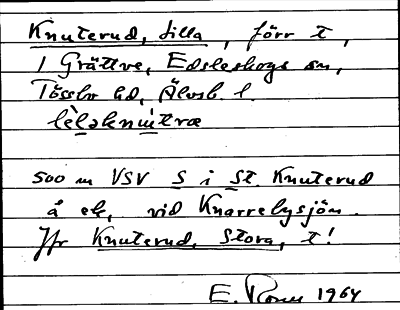 Knuterud, Lilla, förr t,
1 Grättve, Edsleskogs sn,
Tössbo hd, Älvsb. l.
lèləknu̇træ
500 m VSV S i St. Knuterud
å ek, vid Knarrebysjön.
Jfr Knuterud, Stora, t!
E. 1964